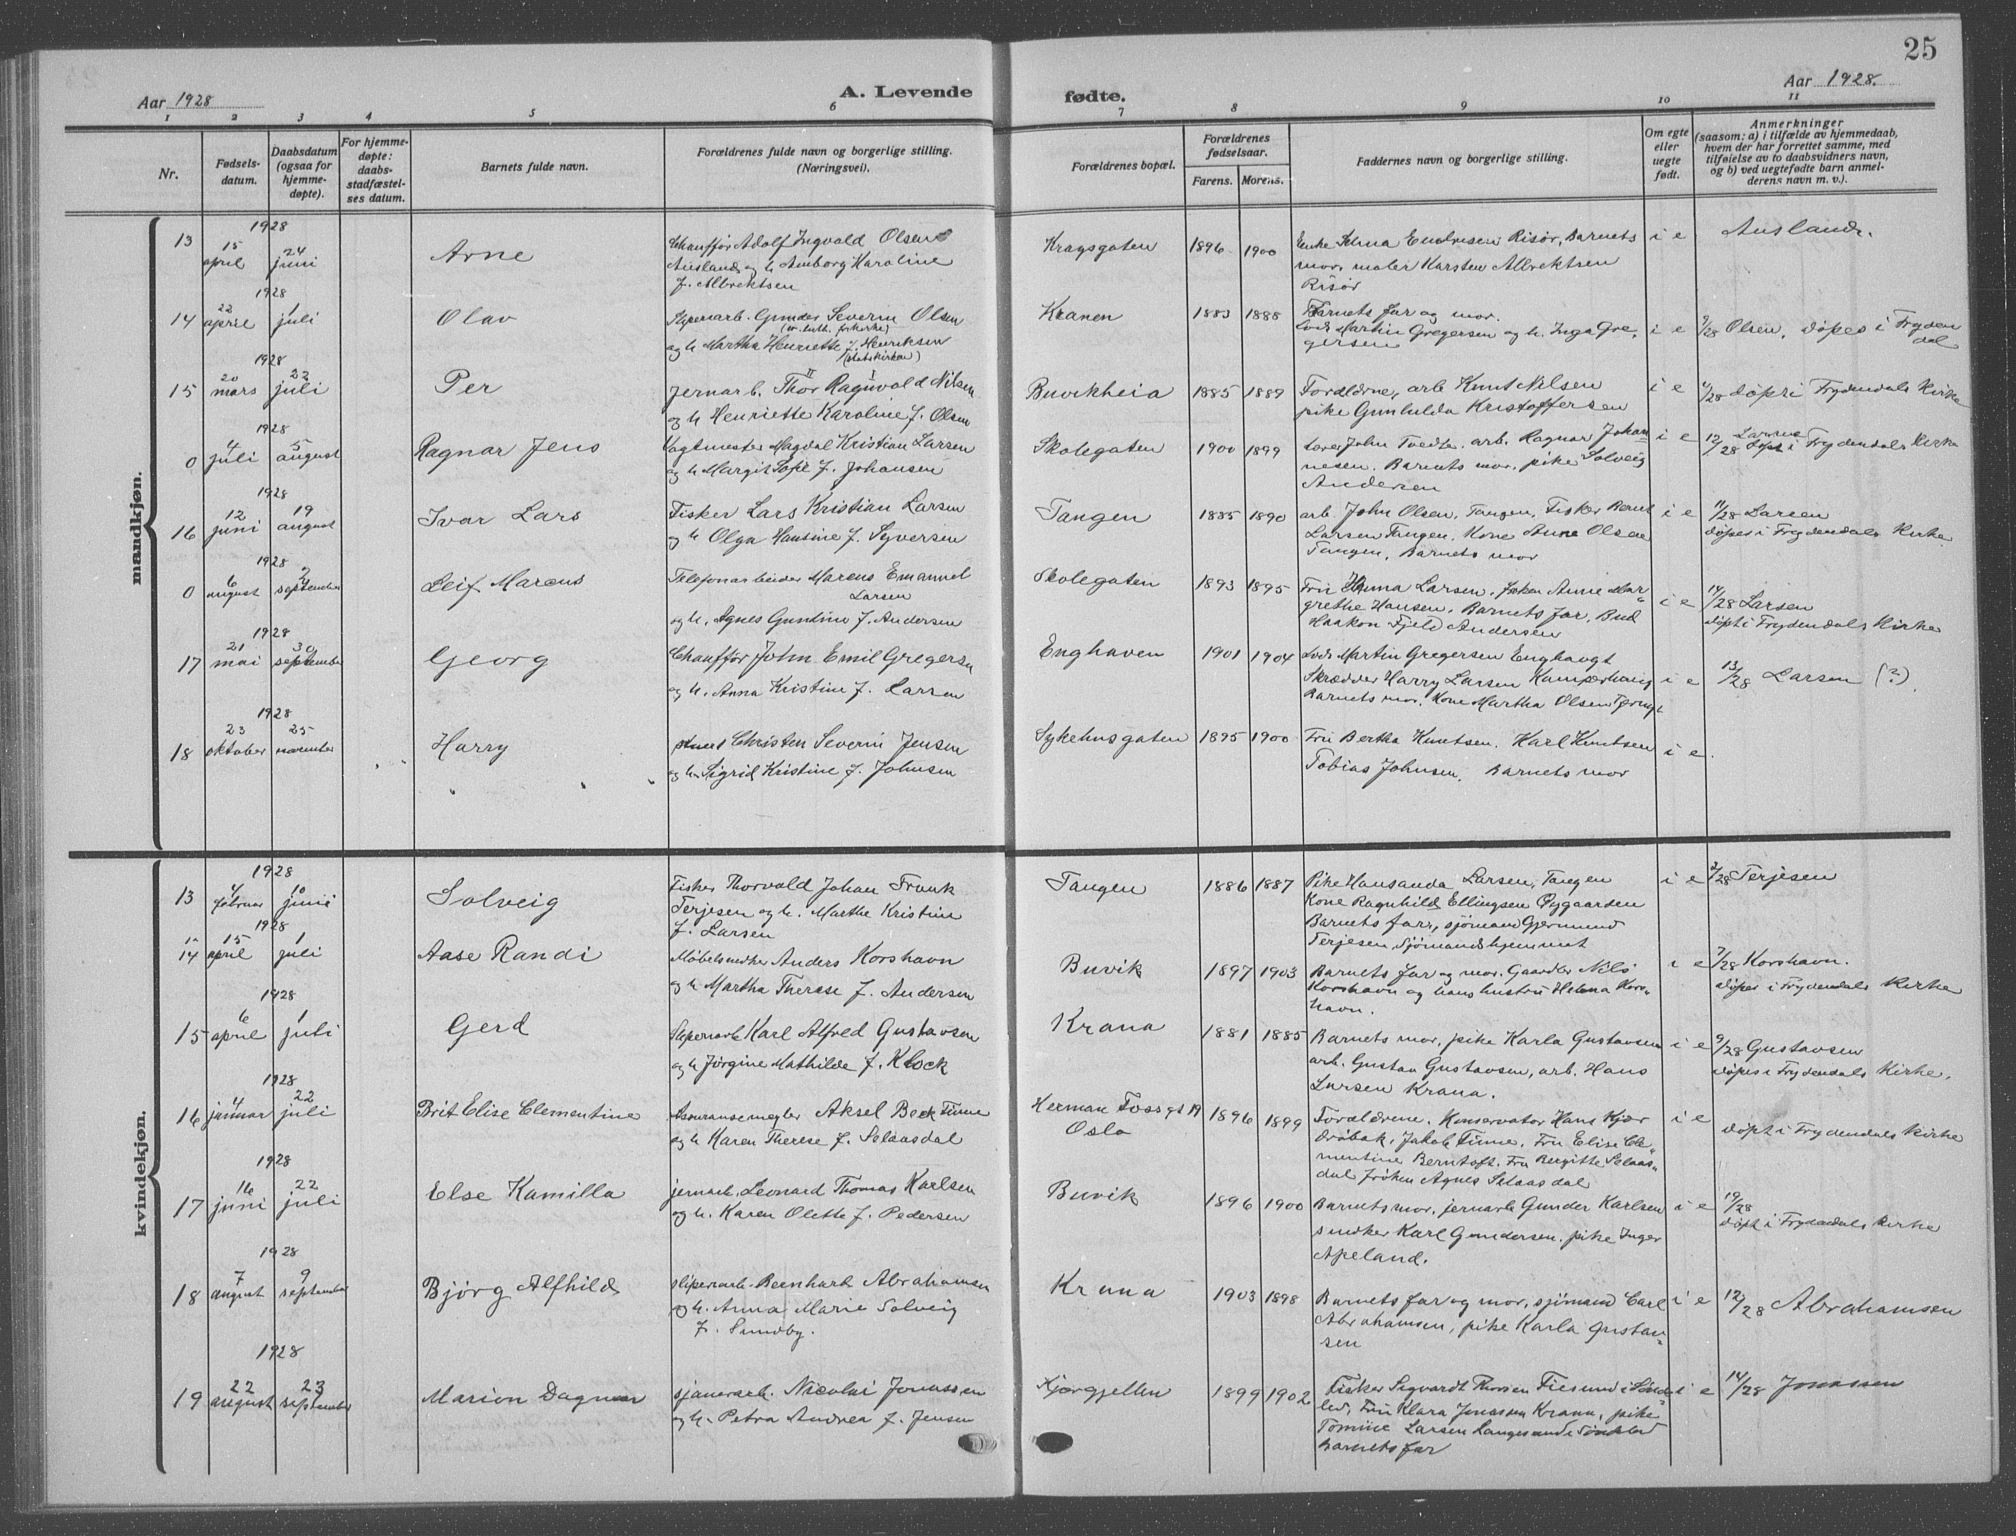 25
Aar 1928
A. Levende
fødte.
Aar 1928.
1 2 3 4 5 6 7 8 9 10 11
Nr.
Fødsels-
datum.
Daabsdatum
(ogsaa for
hjemme-
døpte).
For hjemme-
døpte:
daabs-
stadfæstel-
ses datum.
Barnets fulde navn.
Forældrenes fulde navn og borgerlige stilling.
(Næringsvei).
Forældrenes bopæl.
Forældrenes
fødselsaar.
Farens. Morens.
Faddernes navn og borgerlige stilling.
Om egte
eller
uegte
født.
Anmerkninger
(saasom: a) i tilfælde av hjemmedaab,
hvem der har forrettet samme, med
tilføielse av to daabsvidners navn,
og b) ved uegtefødte barn anmel-
derens navn m. v.).
mandkjøn.
1928
13 15 april 24 juni Arne
Chauffør Adolf Ingvald Olsen
Ausland og h. Amborg Karoline
f. Albrektsen
Kragsgaten 1896 1900
Enke Selma Endresen Risør, Barnets
mor, maler Karsten Albrektsen
Risør
i e
Ausland.
1928
14 22 april 1 juli Olav
Sliperiarb. Gunder Severin Olsen
(ev. luth. frikirke)
og h. Martha Henriette f. Henriksen
(statskirken)
Kranen 1883 1888
Barnets far og mor.
Lods Martin Gregersen og h. Inga Gre-
gersen
i e
9/28 Olsen, døpes i Fryden
dal
1928
15 20 mars 22 juli Per
Jernarb. Thor Ragnvald Nilsen
og h. Henriette Karoline f. Olsen
Buvikheia 1885 1889
Forældrene, arb. Knut Nilsen
pike Gunhilda Kristoffersen
i e
døpt i Frydendals Kirke
1928
0 4 juli 5 august Ragnar Jens
Vagtmester Magdal Kristian Larsen
og h. Margit Sofie f. Johansen
Skolegaten 1900 1899
John Tvedte. arb. Ragnar Johan-
nesen. Barnets mor, pike Solveig
Andersen
i e
12/28 Larsen
døpt i Frydendals Kirke
1928
16 12 juni 19 august Ivar Lars
Fisker Lars Kristian Larsen
og h. Olga Hansine f. Syversen
Tangen 1885 1890
arb. John Olsen, Tangen, Fisker Bernt
Larsen Tangen, Kone Anne Olsen
Tangen, Barnets mor
i e
11/28 Larsen
døpes i Frydendals Kirke.
1928
0 6 august 2 september Leif Marcus
Telefonarbeider Marcus Emanuel
Larsen
og h. Agnes Gundine f. Andersen
Skolegaten 1893 1895
Fru Anna Larsen, frøken Anne Mar-
grethe Hansen, Barnets far, Bud
Haakon Fjeld Andersen
i e
14/28 Larsen
døpt i Frydendals Kirke
1928
17 21 mai 30 september Georg
Chauffør John Emil Gregersen
og h. Anna Kristine f. Larsen
Enghaven 1901 1904
Lods Martin Gregersen Enghavgt
Skrædder Harry Larsen Kamperhaug
Barnets mor. Kone Martha Olsen
i e
13/28 Larsen (?).
1928
18 23 oktober 25 november Harry
Christen Severin Jensen
og h. Sigrid Kristine f. Johnsen
Sykehusgaten 1895 1900
Fru Bertha Knutsen. Karl Knutsen
Tobias Johnsen. Barnets mor
i e.
kvindekjøn.
1928
13 4 februar 10 juni Solveig
Fisker Thorvald Johan Frank
Terjesen og h. Marthe Kristine
f. Larsen
Tangen 1886 1887
Pike Hansanda Larsen, Tangen
Kone Ragnhild Ellingsen Øygaarden
Barnets far, sjømand Gjermund
Terjesen, Sjømandshjemmet
i e
2/28 Terjesen
1928
14 15 april 1 juli Aase Randi
Møbelsnedker Anders Korshavn
og h. Martha Therese f. Andersen
Buvik 1897 1903
Barnets far og mor. Gaardbr Nils
Korshavn og hans hustru Helena Kors-
havn.
i e
7/28 Korshavn.
døpes i Frydendals Kirke
1928
15 6 april 1 juli Gerd
Sliperiarb Karl Alfred Gustavsen
og h. Jørgine Mathilde f. Klock
Krana 1881 1885
Barnets mor, pike Karla Gustavsen
arb. Gustav Gustavsen, arb. Hans
Larsen Krana.
i e
9/28 Gustavsen
døpes i Frydendals Kirke.
1928
16 4 januar 22 juli Brit Elise Clementine
Assuransemegler Aksel Beck Finne
og h. Karen Therese f. Selaasdal
Herman Fossgt 19
Oslo
1896 1899
Forældrene. Konservator Hans Kjær
Drøbak, Jakob Finne, Fru Elise Cle-
mentine Berntoft. Fru Bergitte Selaas-
dal frøken Agnes Selaasdal
i e
døpt i Frydendals Kirke
1928
17 16 juni 22 juli Else Kamilla
jernarb. Leonard Thomas Karlsen
og h. Karen Olette f. Pedersen
Buvik 1896 1900
Barnets mor, jernarb Gunder Karlsen
snedker Karl Gundersen, pike Inger
Apeland.
i e
19/28
døpt i Frydendals Kirke
1928
18 7 august 9 september Bjørg Alfhild
sliperiarb. Bernhart Abrahamsen
og h. Anna Marie Solveig
f. Sundby.
Krana 1903 1898
Barnets far og mor, sjømand Carl
Abrahamsen, pike Karla Gustav-
sen
i e
12/28 Abrahamsen
1928
19 22 august 23 september Marion Dagmar
sjauerarb. Nicolai Jonassen
og h. Petra Andrea f. Jensen
1899 1902
Fisker Sigvardt Fiesund i Sønde-
led, Fru Klara Jonassen Krana, pike
Tomine Larsen Langesund i Søndeled
Barnets far
i e
14/28 Jonassen